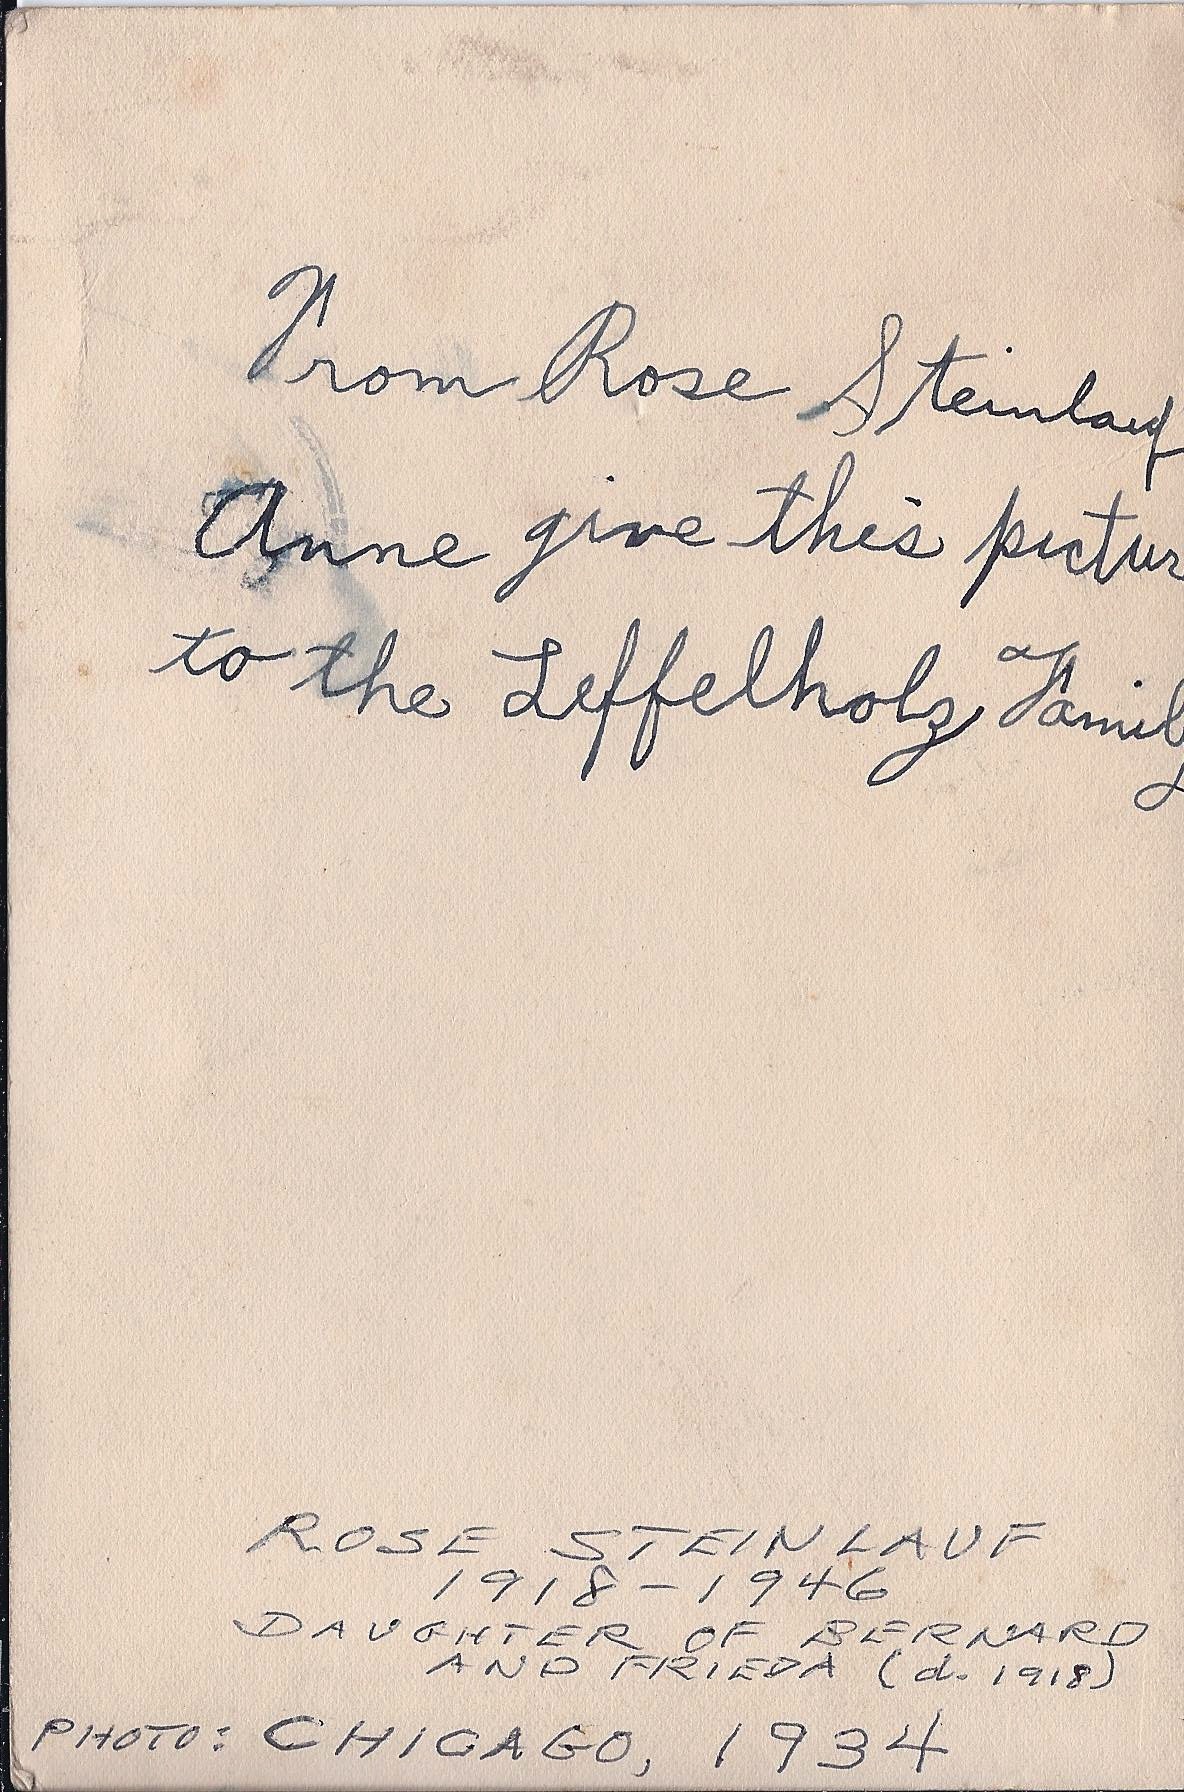 From Rose Steinlauf
Anne give this pictur
to the Leffelholz Family
ROSE STEINLAUF
1918-1946
DAUGHTER OF BERNARD
AND FRIEDA (d. 1918)
PHOTO: CHICAGO, 1934